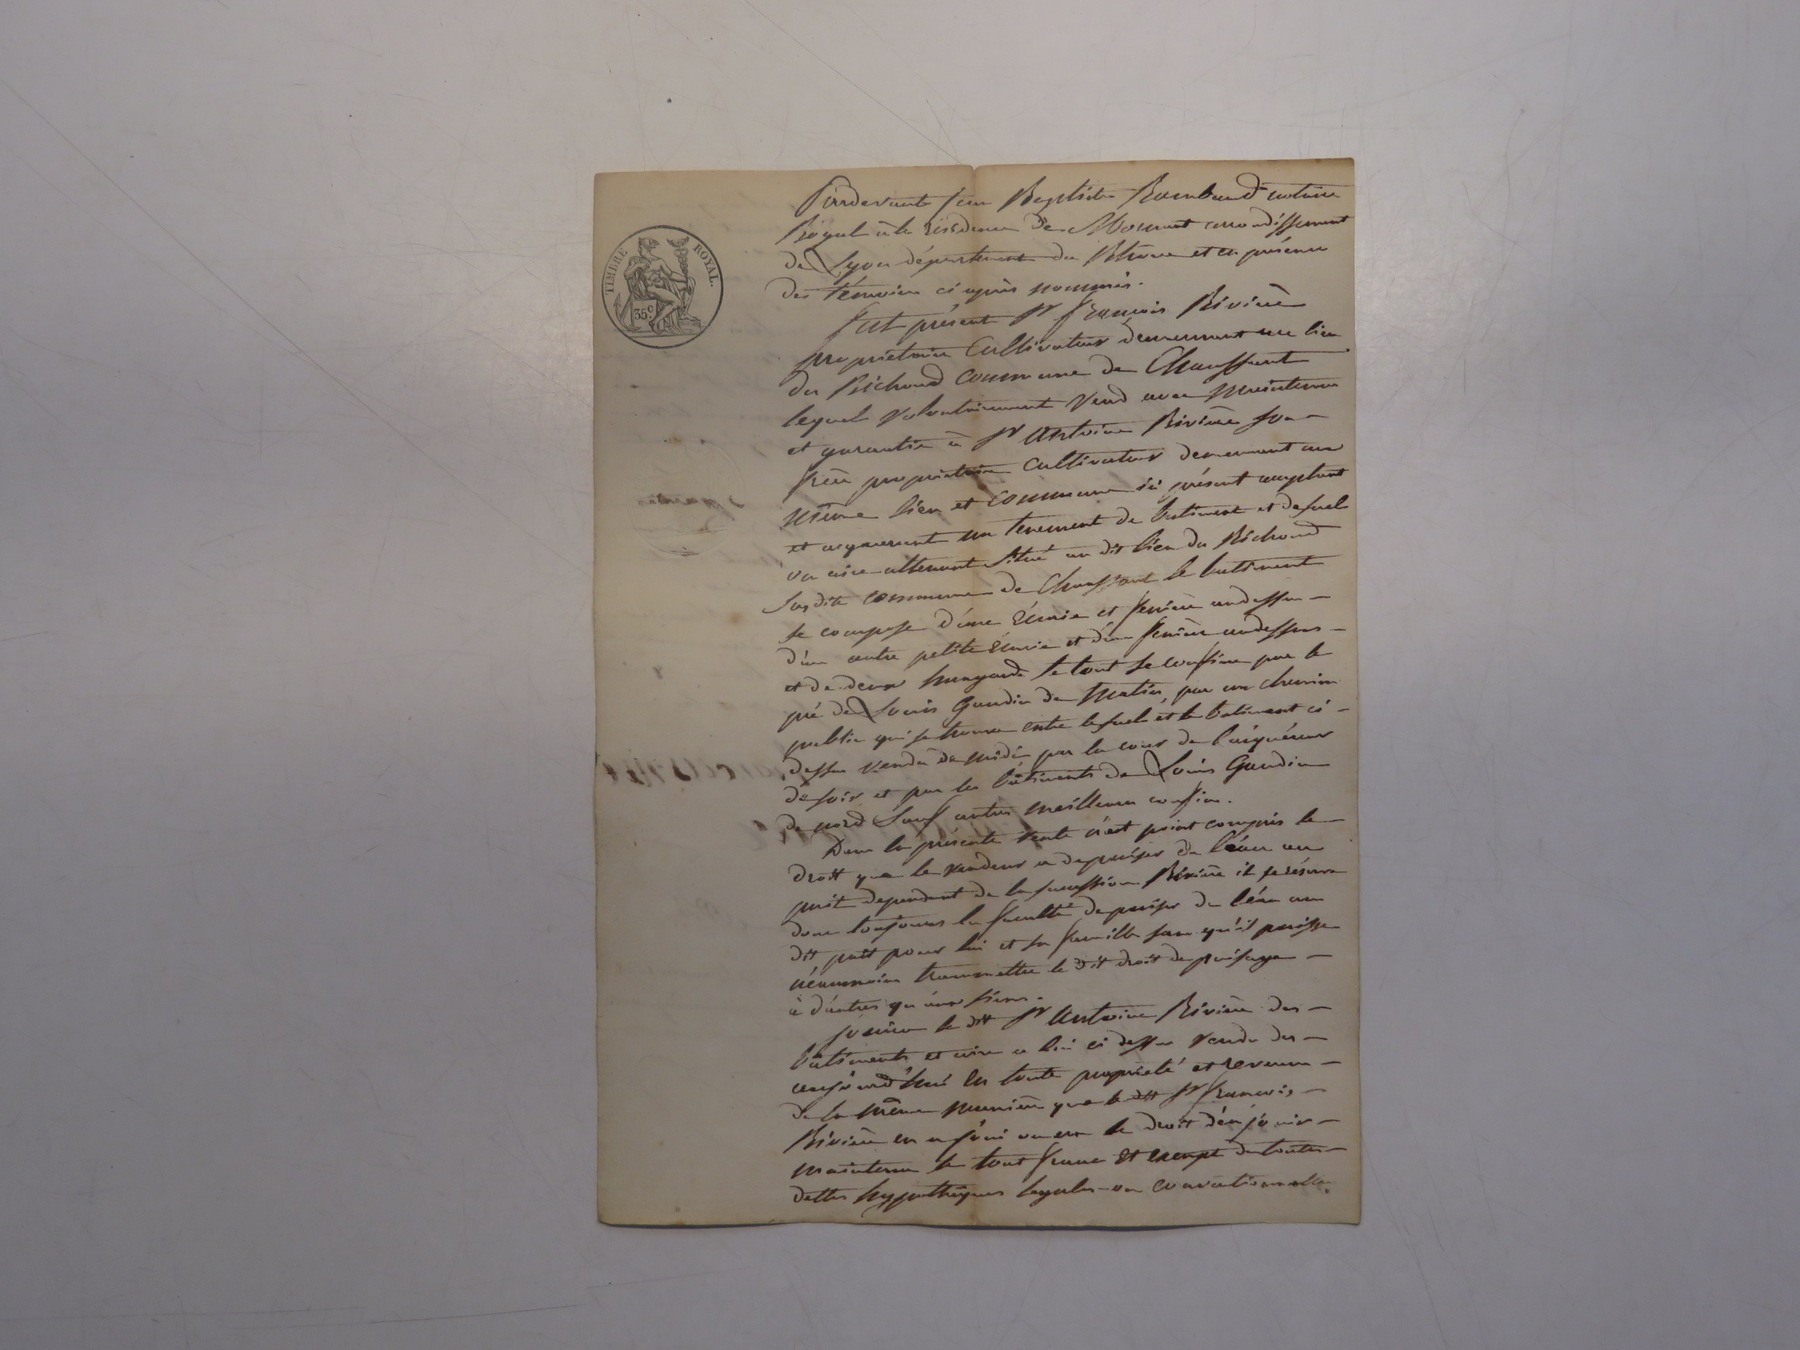 TIMBRE ROYAL.
35c
Pardevant Jean Baptiste Rambaud notaire
Royal à la résidence de Mornant arrondissement
de Lyon département du Rhone et en présence
des témoins ci après nommés.
fut présent Sr François Rivière
propriétaire Cultivateur demeurant au lieu
du Richoud commune de Chaussant
lequel volontairement vend avec maintenue
et garantie à Sr Antoine Rivière son
frère propriétaire cultivateur demeurant au
même lieu et commune ici présent acceptant
et acquerant un tenement de batiment et de suel
ou aire attenant situé au dit lieu du Richoud
susdite commune de Chaussant le batiment
se compose d'une écurie et fenière audessus
d'une autre petite écurie et d'une fenière audessus
et de deux hangards le tout se confine par le
pré de Louis Gaudin de matin, par un chemin
public qui se trouve entre le suel et le batiment ci
dessus vendu de midi par la cour de l'aquéreur
de soir et par les bâtiments de Louis Gaudin
de nord sauf autres meilleurs confins.
Dans la présente vente n'est point compris le
droit que le vendeur a de puiser de l'eau au
puit dependant de la succession Rivière il se réserve
donc toujours la faculté de puiser de l'eau au
dit puit pour lui et sa famille sans qu'il puisse
néanmoins transmettre le dit droit de puisage
à d'autres qu'aux siens.
Jouira le dit Sr Antoine Rivière des
bâtiments et aire a lui ci dessus vendu des
aujourd'hui en toute propriété et revenu
de la même manière que le dit Sr François
Rivière en a joui ou eu le droit d'en jouir
maintenu le tout franc et exempt de toutes
dettes hyppothèques legales ou conventionnelles